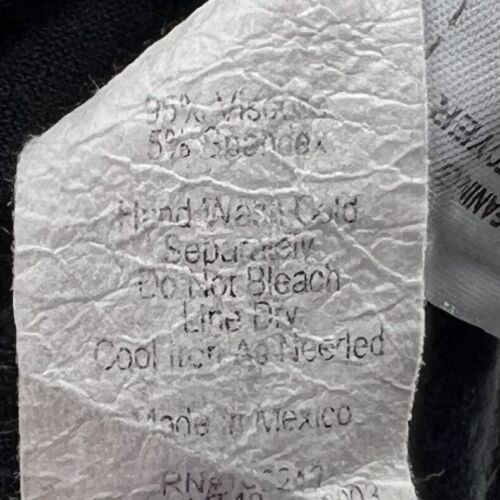 95% Viscose
5% Spandex
Hand Wash Cold
Separately
Do Not Bleach
Line Dry
Cool Iron As Needed
Made in Mexico